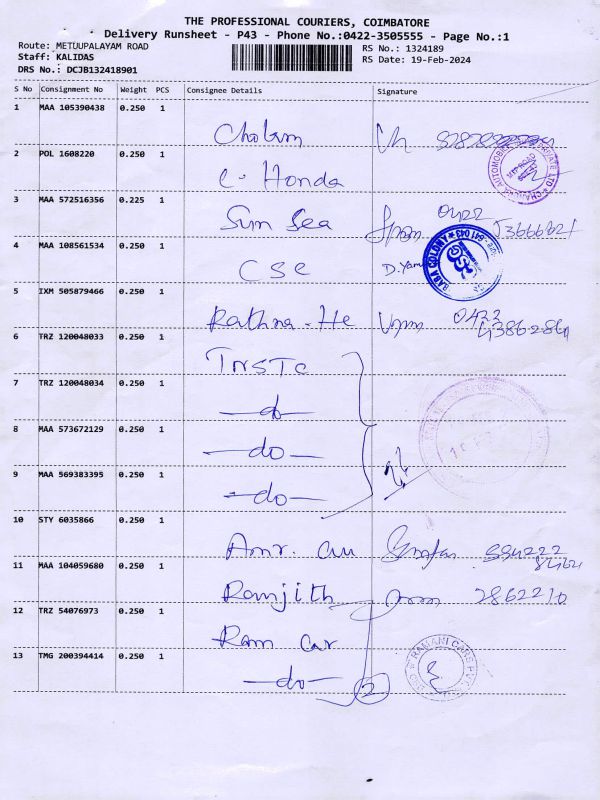 THE PROFESSIONAL COURIERS, COIMBATORE
Delivery Runsheet - P43 - Phone No.:0422-3505555 - Page No.:1
Route: METUUPALAYAM ROAD
RS No.: 1324189
Staff: KALIDAS
RS Date: 19-Feb-2024
DRS No.: DCJB132418901
S No Consignment No Weight PCS Consignee Details Signature
1 MAA 105390438 0.250 1
2 POL 1608220 0.250 1
C. Honda
3 MAA 572516356 0.225 1
Sun Sea 0422
4 MAA 108561534 0.250 1
CSC
5 IXM 505879466 0.250 1
Rathna - He 0422
6 TRZ 120048033 0.250 1
TNSTC
7 TRZ 120048034 0.250 1
—do—
8 MAA 573672129 0.250 1
—do—
9 MAA 569383395 0.250 1
—do—
10 STY 6035866 0.250 1
11 MAA 104059680 0.250 1
Ramjith 2862210
12 TRZ 54076973 0.250 1
Ram Car
RAMANI CARS PVT
13 TMG 200394414 0.250 1
—do— 2